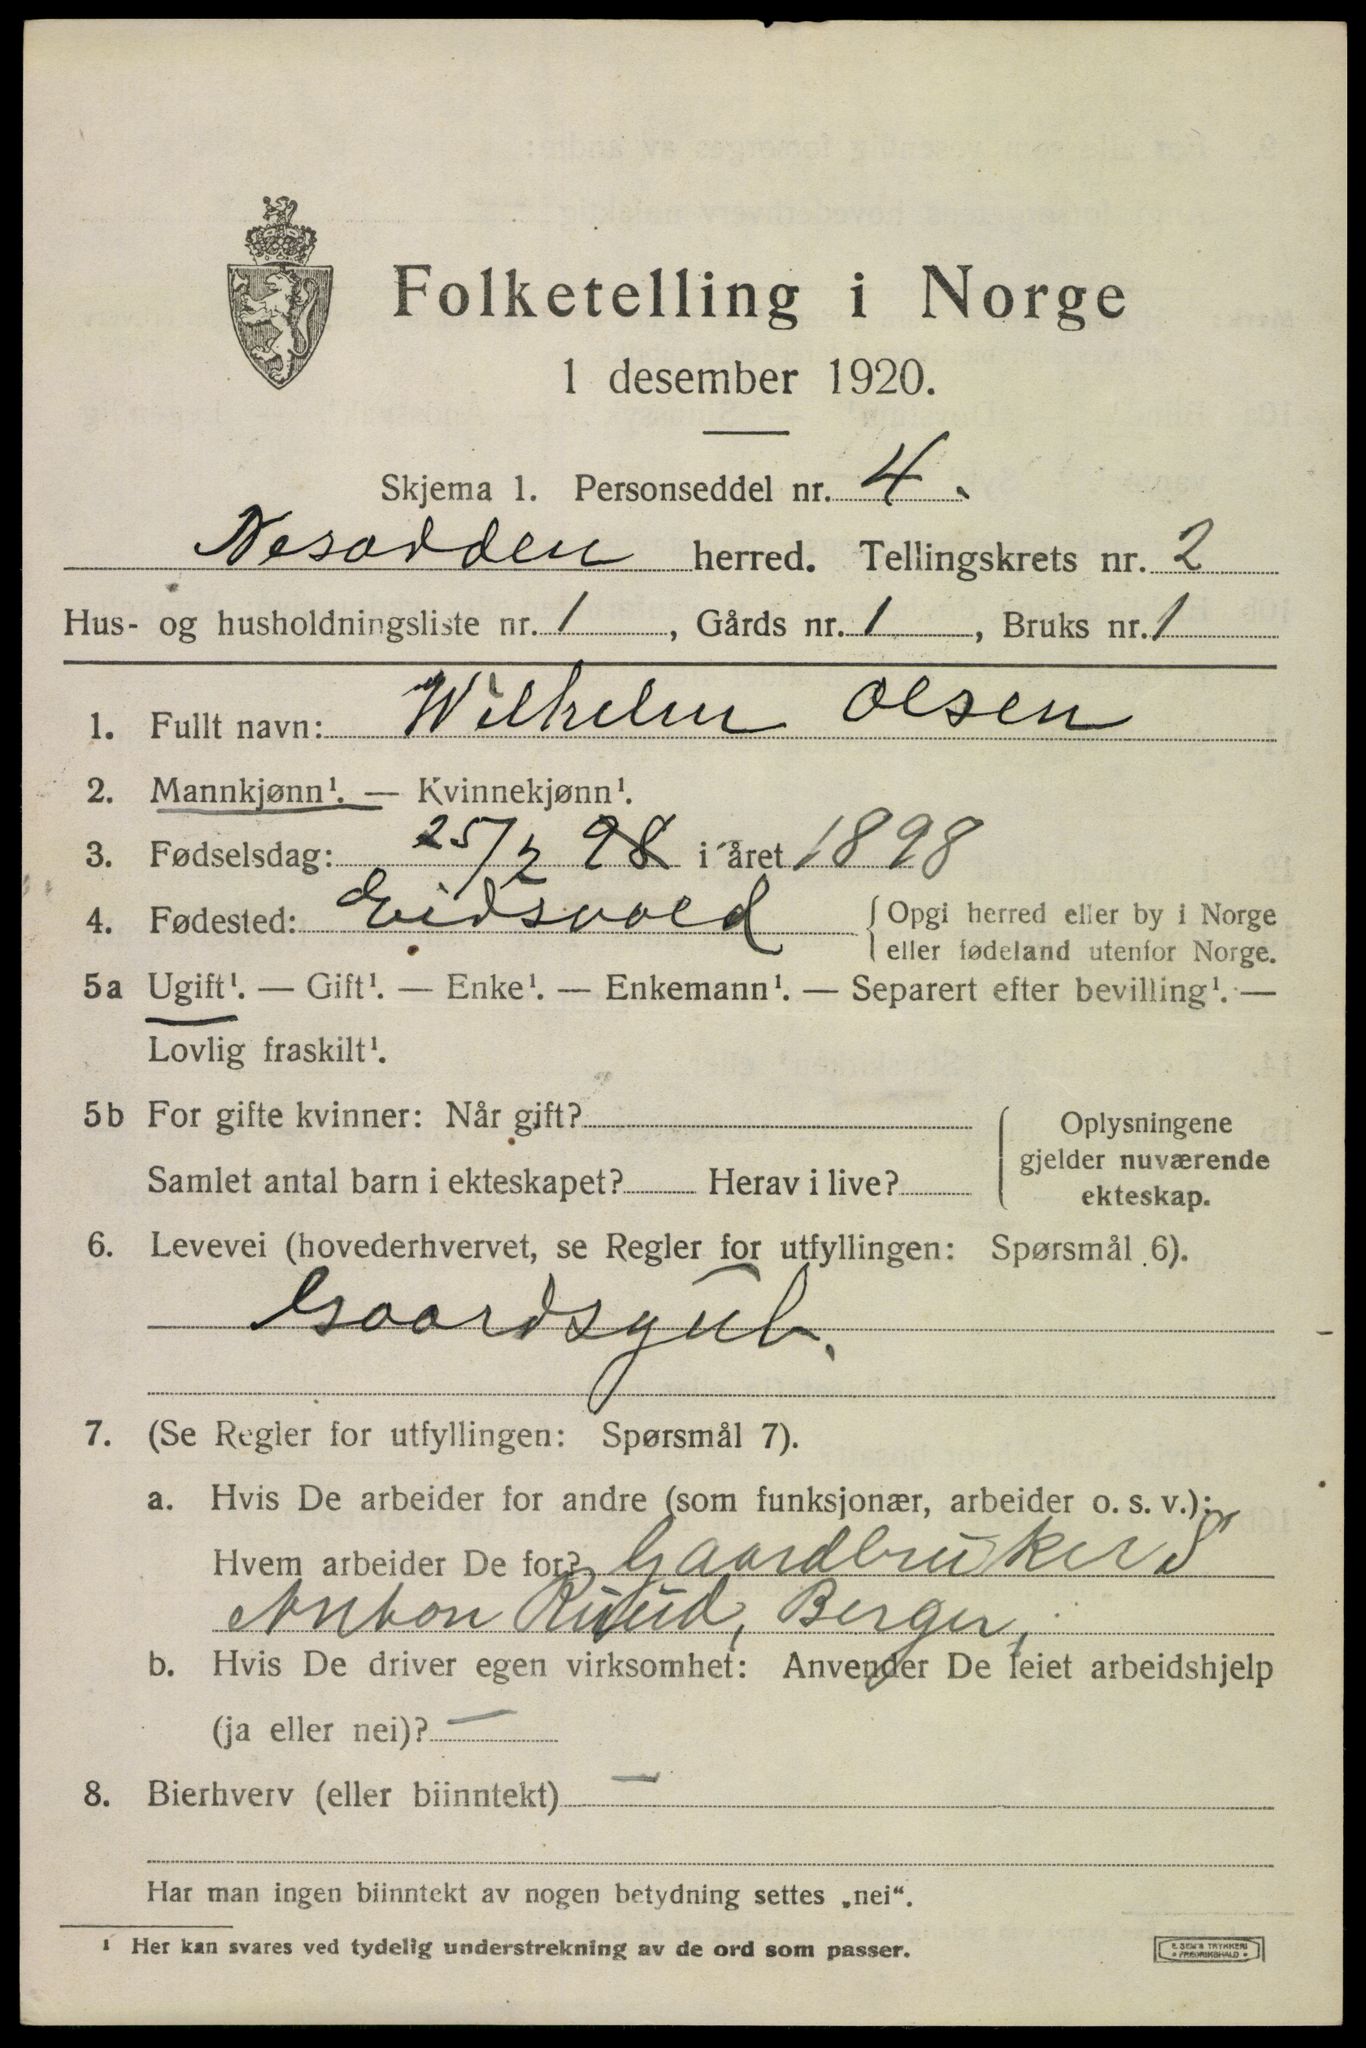 Folketelling i Norge
1 desember 1920.
Skjema 1. Personseddel nr. 4.
Nesodden herred. Tellingskrets nr. 2
Hus- og husholdningsliste nr. 1, Gårds nr. 1, Bruks nr. 1
1. Fullt navn: Wilhelm Olsen
2. Mannkjønn¹. — Kvinnekjønn¹.
3. Fødselsdag: 25/2 98 i året 1898
4. Fødested: Eidsvold {Opgi herred eller by i Norge
eller fødeland utenfor Norge.
5a Ugift¹. — Gift¹. — Enke¹. — Enkemann¹. — Separert efter bevilling¹. —
Lovlig fraskilt¹.
5b For gifte kvinner: Når gift?
Samlet antal barn i ekteskapet? Herav i live?
Oplysningene
gjelder nuværende
ekteskap.
6. Levevei (hovederhvervet, se Regler for utfyllingen: Spørsmål 6).
Gaardsgut.
7. (Se Regler for utfyllingen: Spørsmål 7).
a. Hvis De arbeider for andre (som funksjonær, arbeider o. s. v.):
Hvem arbeider De for? Gaardbruker
Anton Ruud, Berger,
b. Hvis De driver egen virksomhet: Anvender De leiet arbeidshjelp
(ja eller nei)? —
8. Bierhverv (eller biinntekt) —
Har man ingen biinntekt av nogen betydning settes „nei“.
¹ Her kan svares ved tydelig understrekning av de ord som passer.
E. SEM'S TRYKKERI
* FREDRIKSHALD *